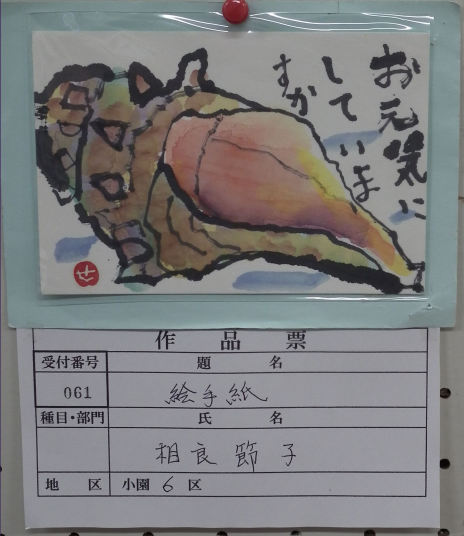 お元気に
していま
すか
せ
作品票
受付番号 題名
061 絵手紙
種目・部門 氏名
相良節子
地区 小園6区